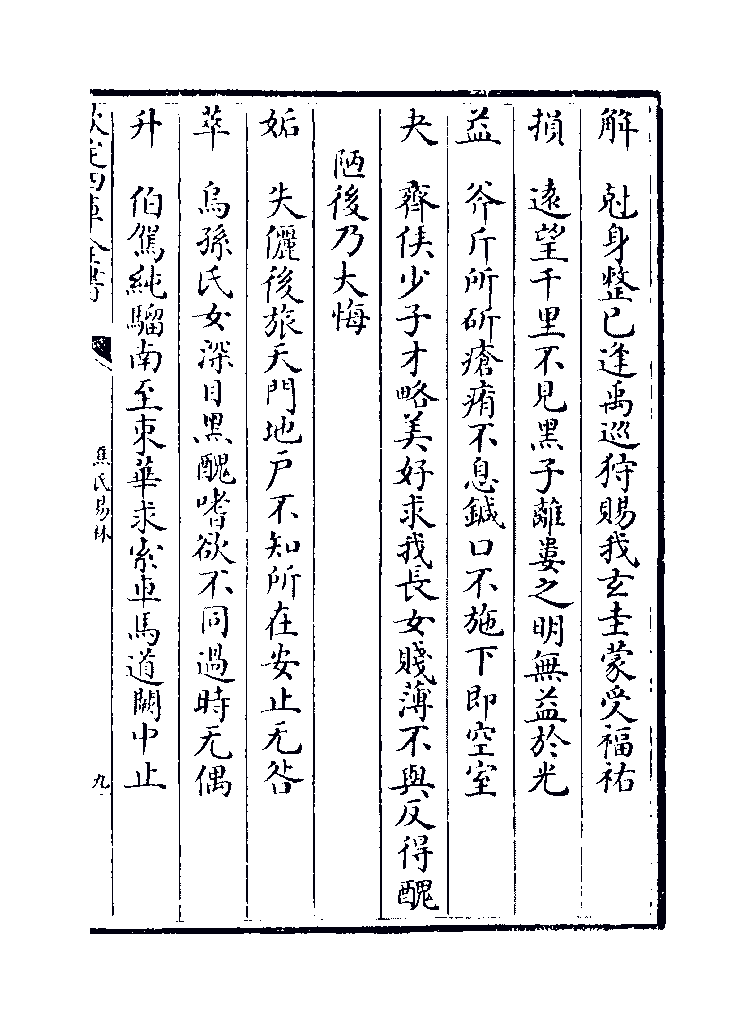 解　尅身整己逢禹巡狩賜我玄圭蒙受福祐
損　遠望千里不見黑子離婁之明無益於光
益　斧斤所斫瘡痏不息鍼口不施下即空室
夬　齊侯少子才略美好求我長女賤薄不與反得醜
陋後乃大悔
姤　失儷後旅天門地户不知所在安止无咎
萃　烏孫氏女深目黑醜嗜欲不同過時无偶
升　伯駕純騮南至東華求索車馬道闕中止
欽定四庫全書
焦氏易林
九